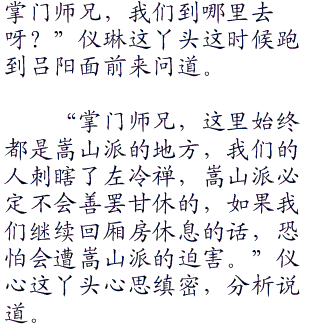 掌门师兄，我们到哪里去
呀？”仪琳这丫头这时候跑
到吕阳面前来问道。
“掌门师兄，这里始终
都是嵩山派的地方，我们的
人刺瞎了左冷禅，嵩山派必
定不会善罢甘休的，如果我
们继续回厢房休息的话，恐
怕会遭嵩山派的迫害。”仪
心这丫头心思缜密，分析说
道。